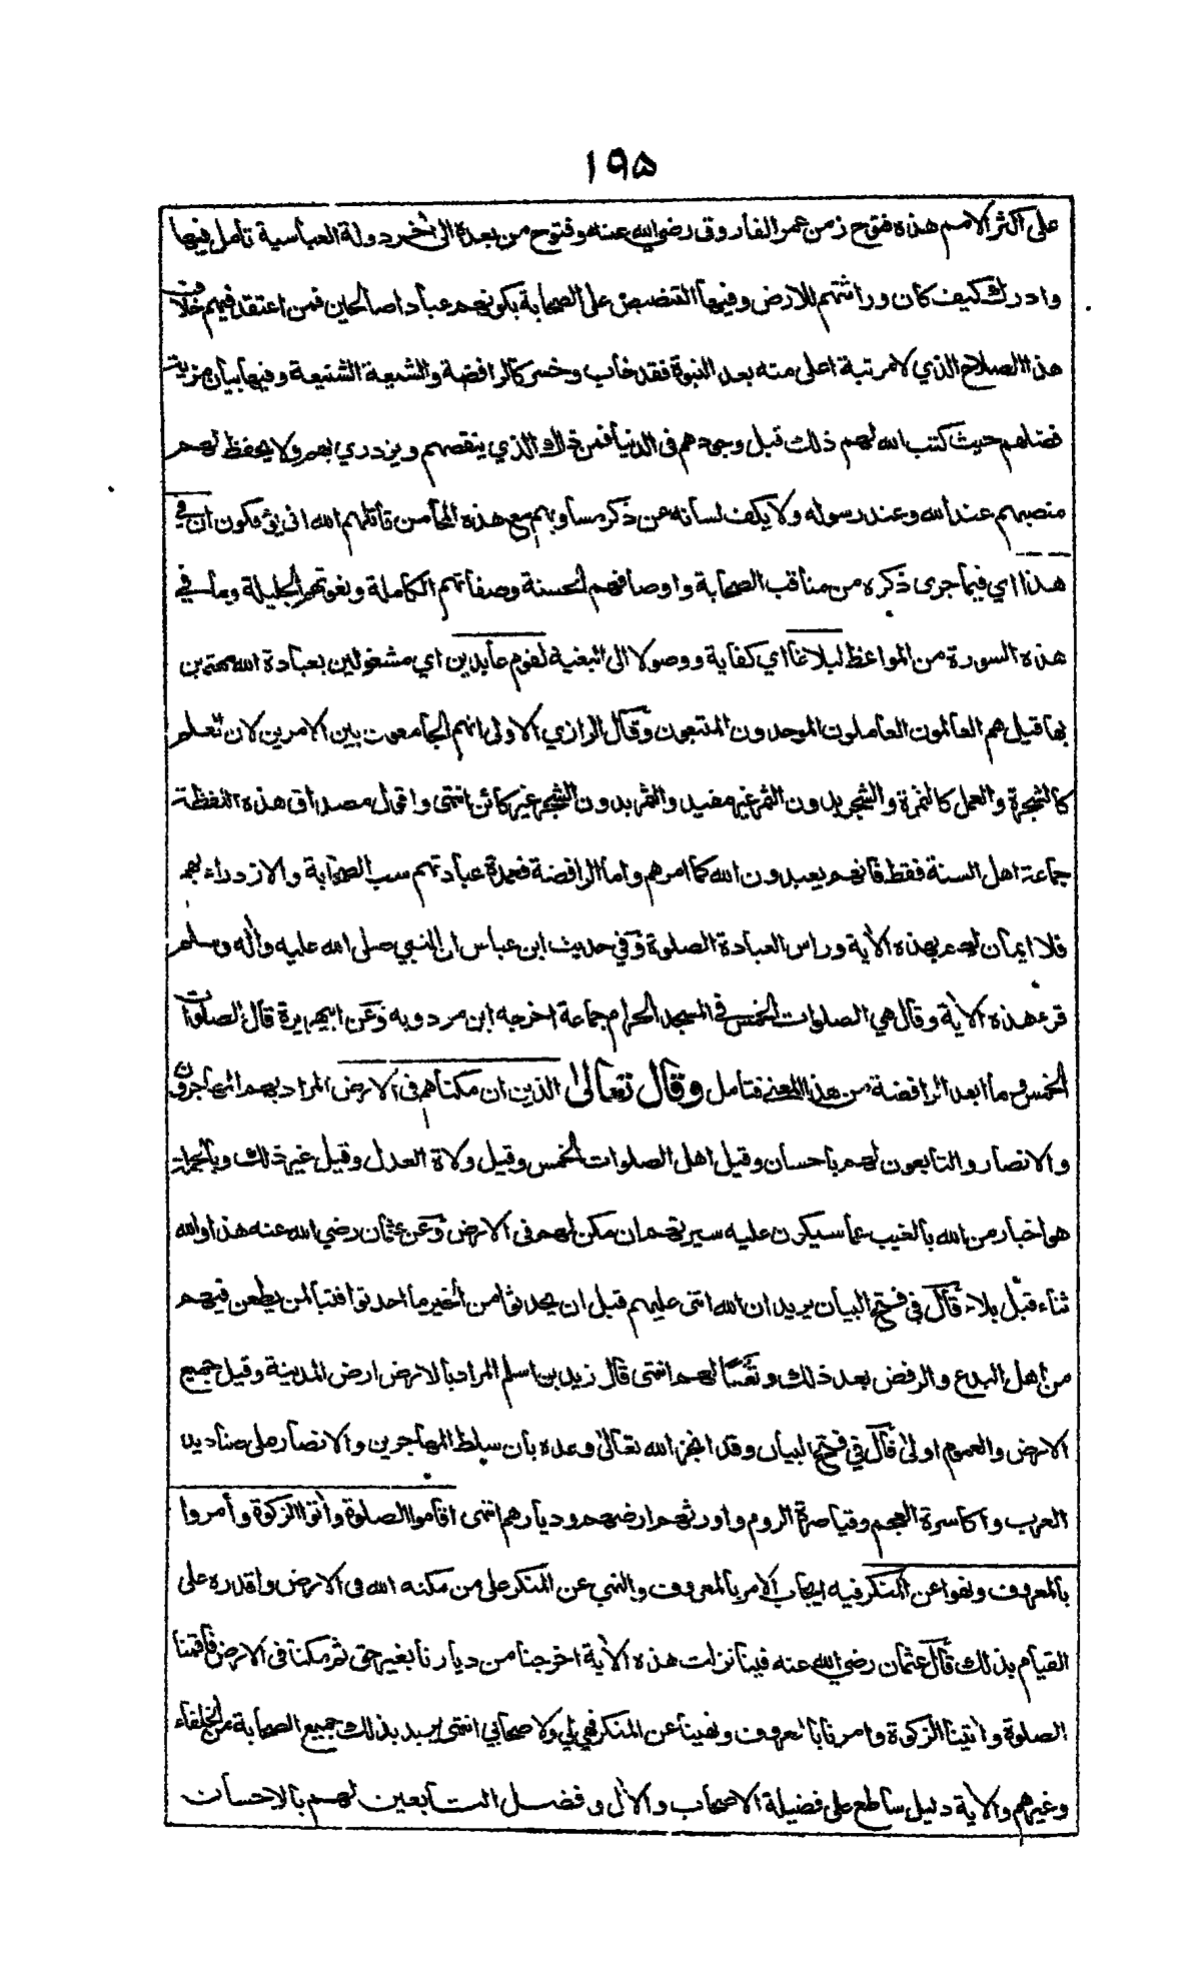 ١٩٥
على اكثر الامم هذه فتوح زمن عمر الفاروق رضي الله عنه وفتوح من بعده الى أخر دولة العباسية تأمل فيها
وادرك كيف كان وراثتهم للارض وفيها التنصيص على الصحابة بكونهم عبادا صالحين فمن اعتقد فيهم خلاف
هذا الصلاح الذي لا مرتبة اعلى منه بعد النبوة فقد خاب وخسر كالرافضة والشيعة الشنيعة وفيها بيان مزية
فضلهم حيث كتب الله لهم ذلك قبل وجودهم فى الدنيا فمن ذاك الذي ينقصهم ويزدري بهم ولا يحفظ لهم
منصبهم عند الله وعند رسوله ولا يكف لسانه عن ذكر مساويهم مع هذه المحامن قاتلهم الله انى يؤفكون ان في
هذا اي فيما جرى ذكره من مناقب الصحابة واوصافهم الحسنة وصفاتهم الكاملة ونعوتهم الجليلة وبما في
هذه السورة من المواعظ لبلاغا اي كفاية ووصولا الى البغية لقوم عابدين اي مشغولين بعبادة الله مهتمين
بها قيل هم العالمون العاملون الموحدون المتبعون وقال الرازي الاولى انهم الجامعون بين الامرين لان العلم
كالشجرة والعمل كالثمرة والشجر بدون الثمر غير مفيد والثمر بدون الشجر غير كائن انتهى واقول مصداق هذه اللفظة
جماعة اهل السنة فقط فانهم يعبدون الله كما امرهم واما الرافضة فعمدة عبادتهم سب الصحابة والازدراء بهم
فلا ايمان لهم بهذه الأية وراس العبادة الصلوة وفي حديث ابن عباس ان النبي صلى الله عليه وأله وسلم
قرء هذه الأية وقال هي الصلوات الخمس في المسجد الحرام جماعة اخرجه ابن مردويه وعن ابي هريرة قال الصلوات
الخمس وما ابعد الرافضة من هذا المعنى فتامل وقال تعالى الذين ان مكناهم فى الارض المراد بهم المهاجرون
والانصار والتابعون لهم باحسان وقيل اهل الصلوات الخمس وقيل ولاة العدل وقيل غير ذلك وبالجملة
هو اخبار من الله بالغيب عما سيكون عليه سيرتهم ان مكن لهم فى الارض وعن عثمان رضي الله عنه هذا والله
ثناء قبل بلاء قال في فتح البيان يريد ان الله اثنى عليهم قبل ان يحدثوا من الخير ما احدثوا فتبا لمن يطعن فيهم
من اهل البدع والرفض بعد ذلك وتعسا لهم انتهى قال زيد بن اسلم المراد بالارض ارض المدينة وقيل جميع
الارض والعموم اولى قال في فتح البيان وقد انجز الله تعالى وعده بان سلط المهاجرين والانصار على صناديد
العرب واكاسرة العجم وقياصرة الروم واورثهم ارضهم وديارهم انتهى اقاموا الصلوة وأتوا الزكوة وأمروا
بالمعروف ونهوا عن المنكر فيه ايجاب الامر بالمعروف والنهي عن المنكر على من مكنه الله فى الارض واقدره على
القيام بذلك قال عثمان رضي الله عنه فينا نزلت هذه الأية اخرجنا من ديارنا بغير حق ثم مكنا فى الارض فاقمنا
الصلوة وأتينا الزكوة وامرنا بالمعروف ونهينا عن المنكر فهي لي ولاصحابي انتهى يريد بذلك جميع الصحابة من الخلفاء
وغيرهم والأية دليل ساطع على فضيلة الاصحاب والأل وفضل التابعين لهم بالاحسان